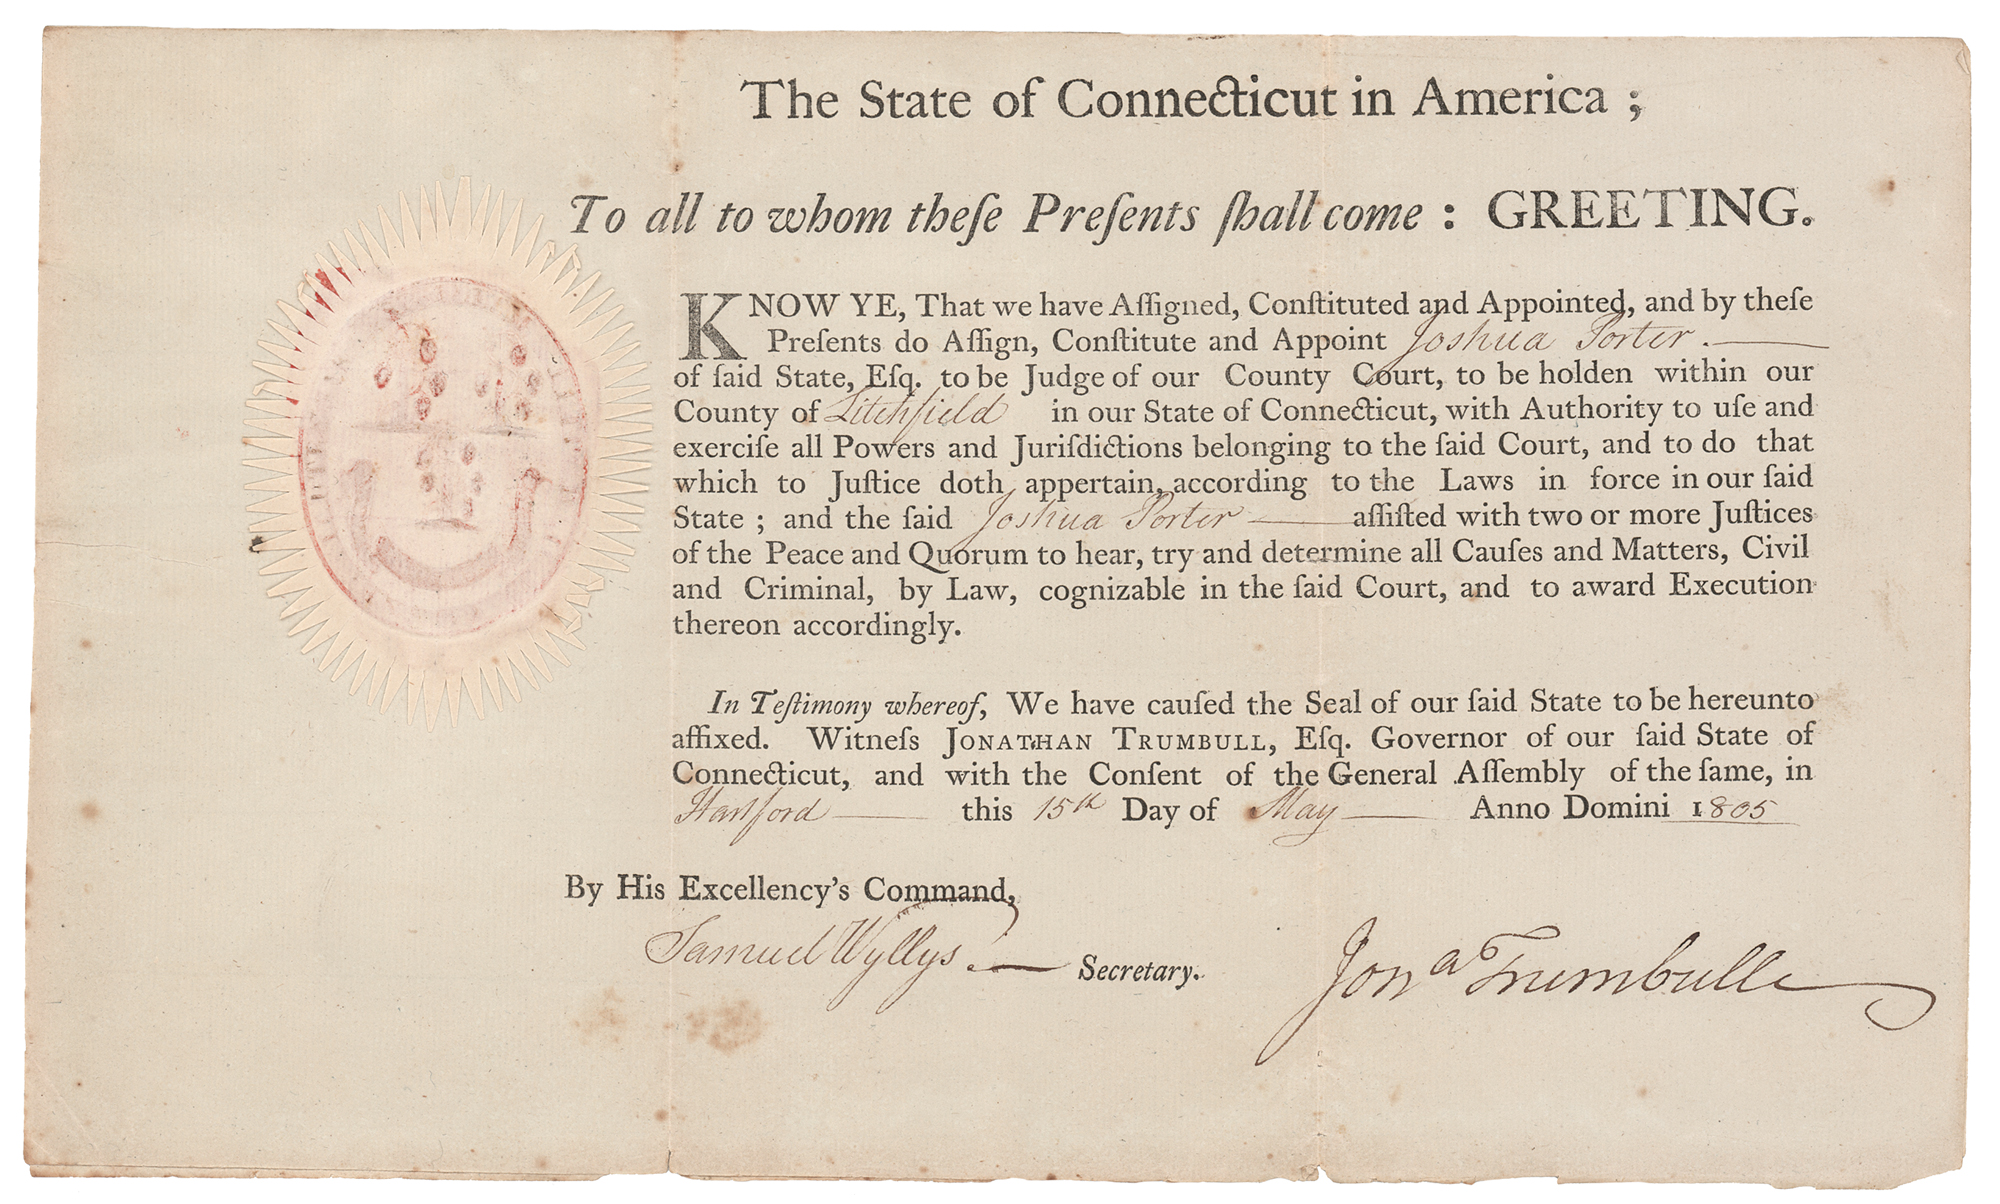 The State of Connecticut in America ;
To all to whom theſe Preſents ſhall come : GREETING.
KNOW YE, That we have Aſſigned, Conſtituted and Appointed, and by theſe
Preſents do Aſſign, Conſtitute and Appoint Joshua Porter.
of ſaid State, Eſq. to be Judge of our County Court, to be holden within our
County of Litchfield in our State of Connecticut, with Authority to uſe and
exerciſe all Powers and Juriſdictions belonging to the ſaid Court, and to do that
which to Juſtice doth appertain, according to the Laws in force in our ſaid
State ; and the ſaid Joshua Porter aſſiſted with two or more Juſtices
of the Peace and Quorum to hear, try and determine all Cauſes and Matters, Civil
and Criminal, by Law, cognizable in the ſaid Court, and to award Execution
thereon accordingly.
In Teſtimony whereof, We have cauſed the Seal of our ſaid State to be hereunto
affixed. Witneſs JONATHAN TRUMBULL, Eſq. Governor of our ſaid State of
Connecticut, and with the Conſent of the General Aſſembly of the ſame, in
Hartford this 15th Day of May Anno Domini 1805
By His Excellency's Command,
Samuel Wyllys. Secretary.
Jonª Trumbull